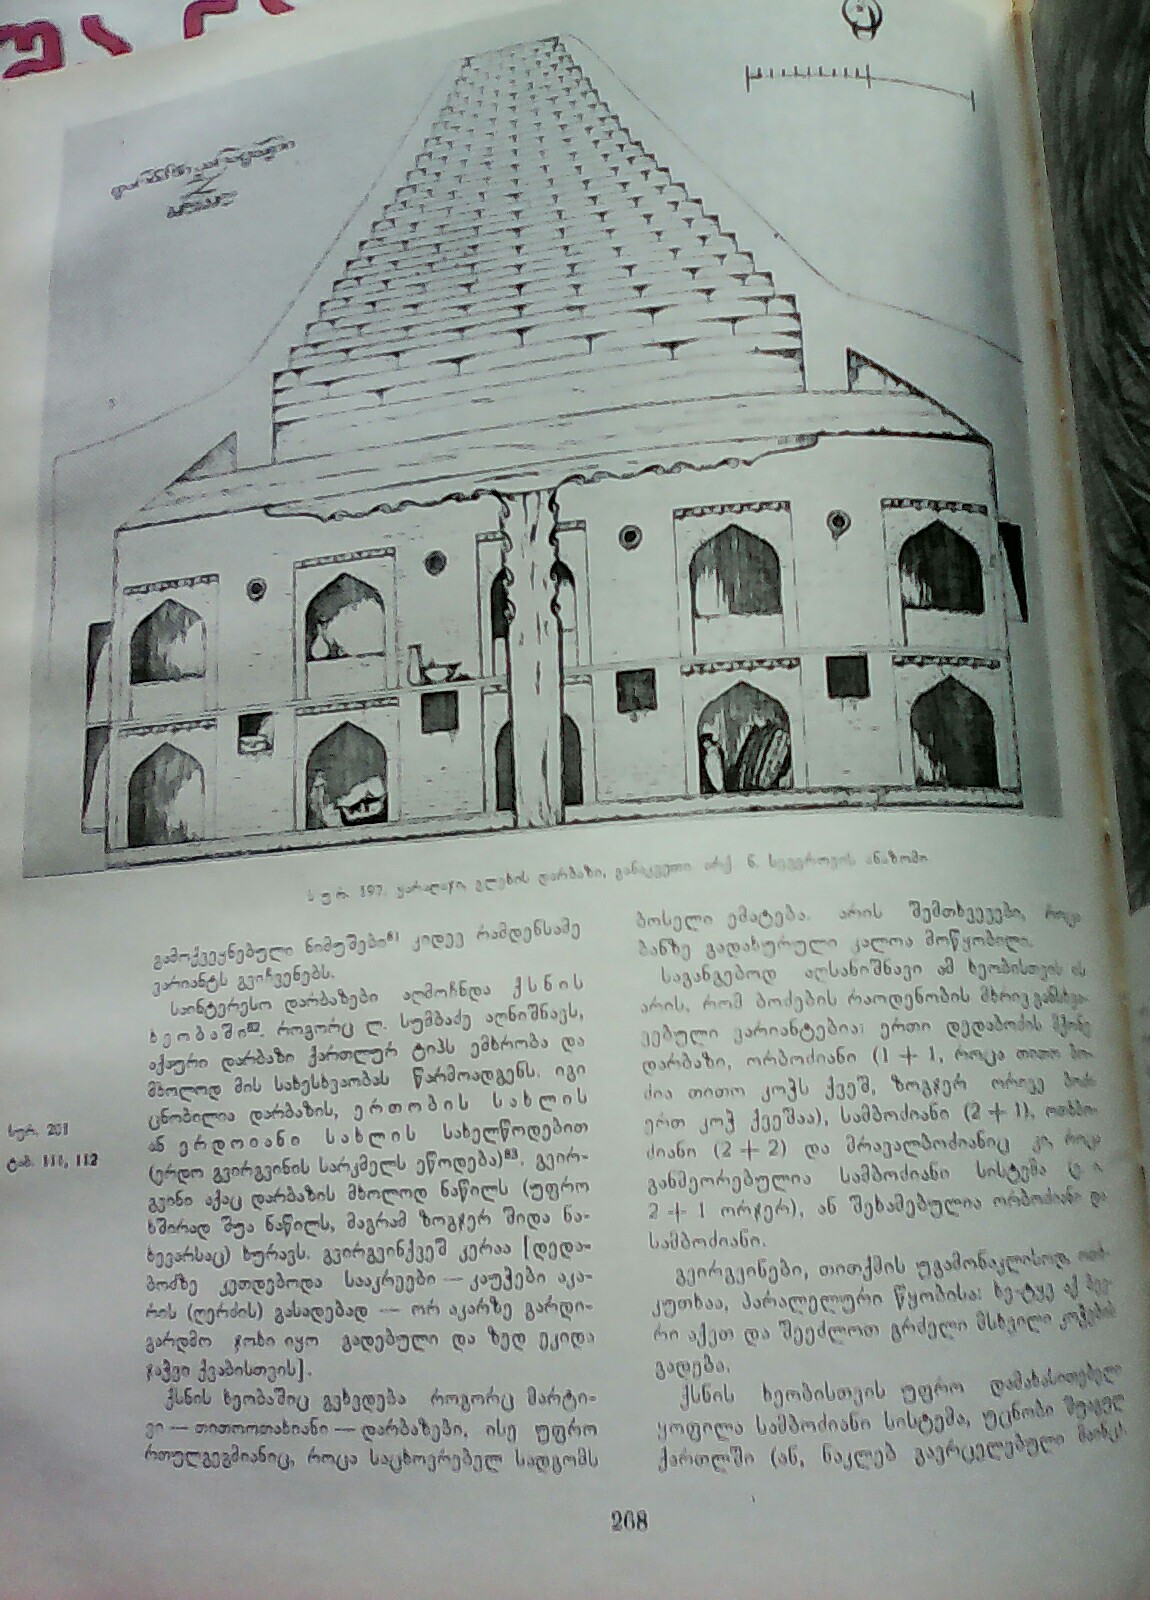 სურ. 197. ყარაღაჯი, გლეხის დარბაზი, განაკვეთი არქ. ნ. სევეროვის ანაზომი
გამოქვეყნებული ნიმუშები⁸¹ კიდევ რამდენსამე
ვარიანტს გვიჩვენებს.
საინტერესო დარბაზები აღმოჩნდა ქსნის
ხეობაში⁸². როგორც ლ. სუმბაძე აღნიშნავს,
აქაური დარბაზი ქართლურ ტიპს ემხრობა და
მხოლოდ მის სახესხვაობას წარმოადგენს. იგი
ცნობილია დარბაზის, ერთობის სახლის
ან ერდოიანი სახლის სახელწოდებით
(ერდო გვირგვინის სარკმელს ეწოდება)⁸³. გვირ-
გვინი აქაც დარბაზის მხოლოდ ნაწილს (უფრო
ხშირად შუა ნაწილს, მაგრამ ზოგჯერ შიდა ნა-
ხევარსაც) ხურავს. გვირგვინქვეშ კერაა [დედა-
ბოძზე კეთდებოდა სააკრეები — კაუჭები აკა-
რის (ღერძის) გასადებად — ორ აკარზე გარდი-
გარდმო ჯოხი იყო გადებული და ზედ ეკიდა
ჯაჭვი ქვაბისთვის].
ქსნის ხეობაშიც გვხვდება როგორც მარტი-
ვი — თითოოთახიანი — დარბაზები, ისე უფრო
რთულგეგმიანიც, როცა საცხოვრებელ სადგომს
სურ. 201
ტაბ. 111, 112
ბოსელი ემატება. არის შემთხვევები, როცა
ბანზე გადახურული კალოა მოწყობილი.
საგანგებოდ აღსანიშნავი ამ ხეობისთვის ის
არის, რომ ბოძების რაოდენობის მხრივ განსხვა-
ვებული ვარიანტებია: ერთი დედაბოძის მქონე
დარბაზი, ორბოძიანი (1 + 1, როცა თითო ბო-
ძია თითო კოჭს ქვეშ, ზოგჯერ ორივე ბოძი
ერთ კოჭ ქვეშაა), სამბოძიანი (2 + 1), ოთხბო-
ძიანი (2 + 2) და მრავალბოძიანიც კი, როცა
განმეორებულია სამბოძიანი სისტემა (ე. ი.
2 + 1 ორჯერ), ან შეხამებულია ორბოძიანი და
სამბოძიანი.
გვირგვინები, თითქმის უგამონაკლისოდ, ოთხ-
კუთხაა, პარალელური წყობისა: ხე-ტყე აქ ბევ-
რი აქვთ და შეეძლოთ გრძელი მსხვილი კოჭების
გადება.
ქსნის ხეობისთვის უფრო დამახასიათებელი
ყოფილა სამბოძიანი სისტემა, უცნობი შუაგულ
ქართლში (ან, ნაკლებ გავრცელებული მაინც).
268